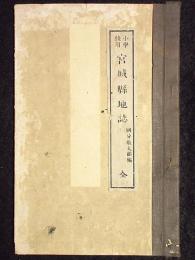 小學
校用
宮城縣地誌
全